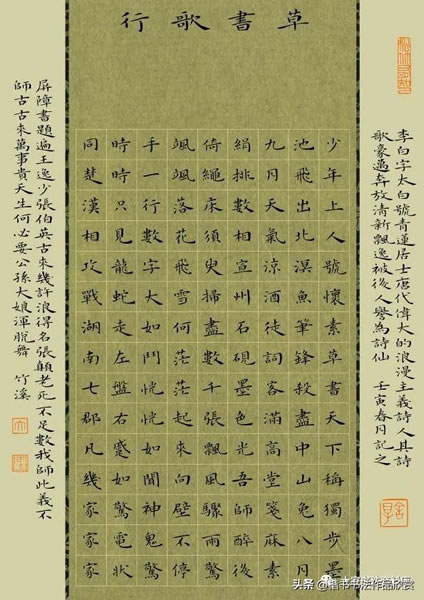 草書歌行
李白字太白號青蓮居士唐代偉大的浪漫主義詩人其詩
歌豪邁奔放清新飄逸被後人譽為詩仙 壬寅春月記之
少年上人號懷素草書天下稱獨步墨
池飛出北溟魚筆鋒殺盡中山兔八月
九月天氣涼酒徒詞客滿高堂箋麻素
絹排數相宣州石硯墨色光吾師醉後
倚繩床須臾掃盡數千張飄風驟雨驚
颯颯落花飛雪何茫茫起來向壁不停
手一行數字大如鬥恍恍如聞神鬼驚
時時只見龍蛇走左盤右蹙如驚電狀
同楚漢相攻戰湖南七郡凡幾家家家
屏障書題遍王逸少張伯英古來幾許浪得名張顛老死不足數我師此義不
師古古來萬事貴天生何必要公孫大娘渾脫舞 竹溪
头条@楷书书法作品欣赏